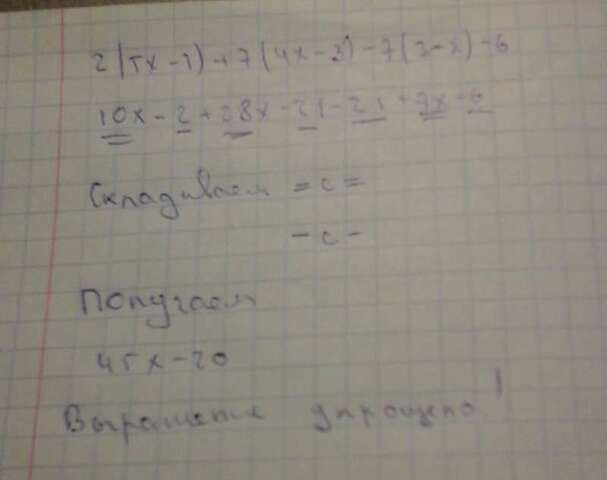 2(5x-1)+7(4x-3)-7(3-x)-6
10x-2+28x-21-21+7x-6
Складываем = с =
- с -
Получаем
45x-20
Выражение упрощено!